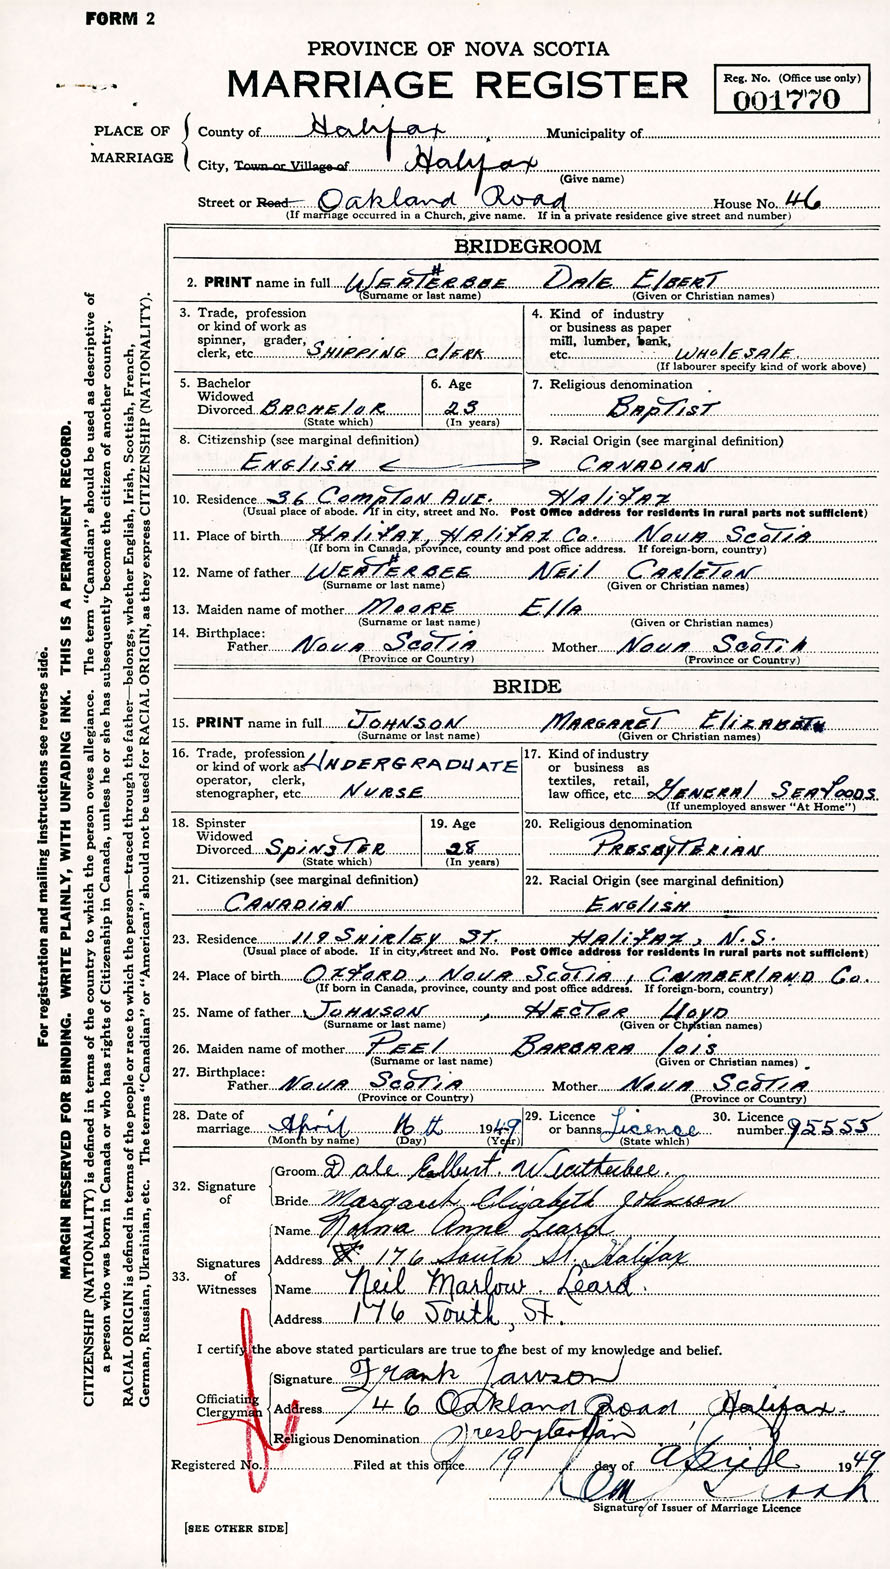 FORM 2
PROVINCE OF NOVA SCOTIA
MARRIAGE REGISTER
Reg. No. (Office use only)
001770
PLACE OF MARRIAGE
County of Halifax Municipality of
City, Town or Village of Halifax
(Give name)
Street or Road Oakland Road House No. 46
(If marriage occurred in a Church, give name. If in a private residence give street and number)
BRIDEGROOM
2. PRINT name in full WEATERBEE DALE ELBERT
(Surname or last name) (Given or Christian names)
3. Trade, profession or kind of work as spinner, grader, clerk, etc. SHIPPING CLERK
4. Kind of industry or business as paper mill, lumber, bank, etc. WHOLESALE
(If labourer specify kind of work above)
5. Bachelor Widowed Divorced BACHELOR
(State which)
6. Age 23
(In years)
7. Religious denomination
BAPTIST
8. Citizenship (see marginal definition)
ENGLISH
9. Racial Origin (see marginal definition)
CANADIAN
10. Residence 36 COMPTON AVE. HALIFAX
(Usual place of abode. If in city, street and No. Post Office address for residents in rural parts not sufficient)
11. Place of birth HALIFAX, HALIFAX Co. NOVA SCOTIA
(If born in Canada, province, county and post office address. If foreign-born, country)
12. Name of father WEATERBEE NEIL CARLETON
(Surname or last name) (Given or Christian names)
13. Maiden name of mother MOORE ELLA
(Surname or last name) (Given or Christian names)
14. Birthplace:
Father NOVA SCOTIA Mother NOVA SCOTIA
(Province or Country) (Province or Country)
BRIDE
15. PRINT name in full JOHNSON MARGARET ELIZABETH
(Surname or last name) (Given or Christian names)
16. Trade, profession or kind of work as operator, clerk, stenographer, etc. UNDERGRADUATE NURSE
17. Kind of industry or business as textiles, retail, law office, etc. GENERAL SEAFOODS
(If unemployed answer "At Home")
18. Spinster Widowed Divorced SPINSTER
(State which)
19. Age 28
(In years)
20. Religious denomination
PRESBYTERIAN
21. Citizenship (see marginal definition)
CANADIAN
22. Racial Origin (see marginal definition)
ENGLISH
23. Residence 119 SHIRLEY ST. HALIFAX, N.S.
(Usual place of abode. If in city, street and No. Post Office address for residents in rural parts not sufficient)
24. Place of birth OXFORD, NOVA SCOTIA, CUMBERLAND Co.
(If born in Canada, province, county and post office address. If foreign-born, country)
25. Name of father JOHNSON, HECTOR LLOYD
(Surname or last name) (Given or Christian names)
26. Maiden name of mother PEEL BARBARA LOIS
(Surname or last name) (Given or Christian names)
27. Birthplace:
Father NOVA SCOTIA Mother NOVA SCOTIA
(Province or Country) (Province or Country)
28. Date of marriage April 16th 1949
(Month by name) (Day) (Year)
29. Licence or banns Licence
(State which)
30. Licence number 95555
32. Signature of
Groom Dale Elbert Weatherbee.
Bride Margaret Elizabeth Johnson
33. Signatures of Witnesses
Name Norma Anne Leard
Address 176 South St. Halifax
Name Neil Marlow Leard.
Address 176 South St.
I certify the above stated particulars are true to the best of my knowledge and belief.
Officiating Clergyman
Signature Frank Lawson
Address 46 Oakland Road, Halifax.
Religious Denomination Presbyterian
Registered No. Filed at this office 19 day of April 1949
Signature of Issuer of Marriage Licence
[SEE OTHER SIDE]
For registration and mailing instructions see reverse side.
MARGIN RESERVED FOR BINDING. WRITE PLAINLY, WITH UNFADING INK. THIS IS A PERMANENT RECORD.
CITIZENSHIP (NATIONALITY) is defined in terms of the country to which the person owes allegiance. The term "Canadian" should be used as descriptive of
a person who was born in Canada or who has rights of Citizenship in Canada, unless he or she has subsequently become the citizen of another country.
RACIAL ORIGIN is defined in terms of the people or race to which the person—traced through the father—belongs, whether English, Irish, Scottish, French,
German, Russian, Ukrainian, etc. The terms "Canadian" or "American" should not be used for RACIAL ORIGIN, as they express CITIZENSHIP (NATIONALITY).